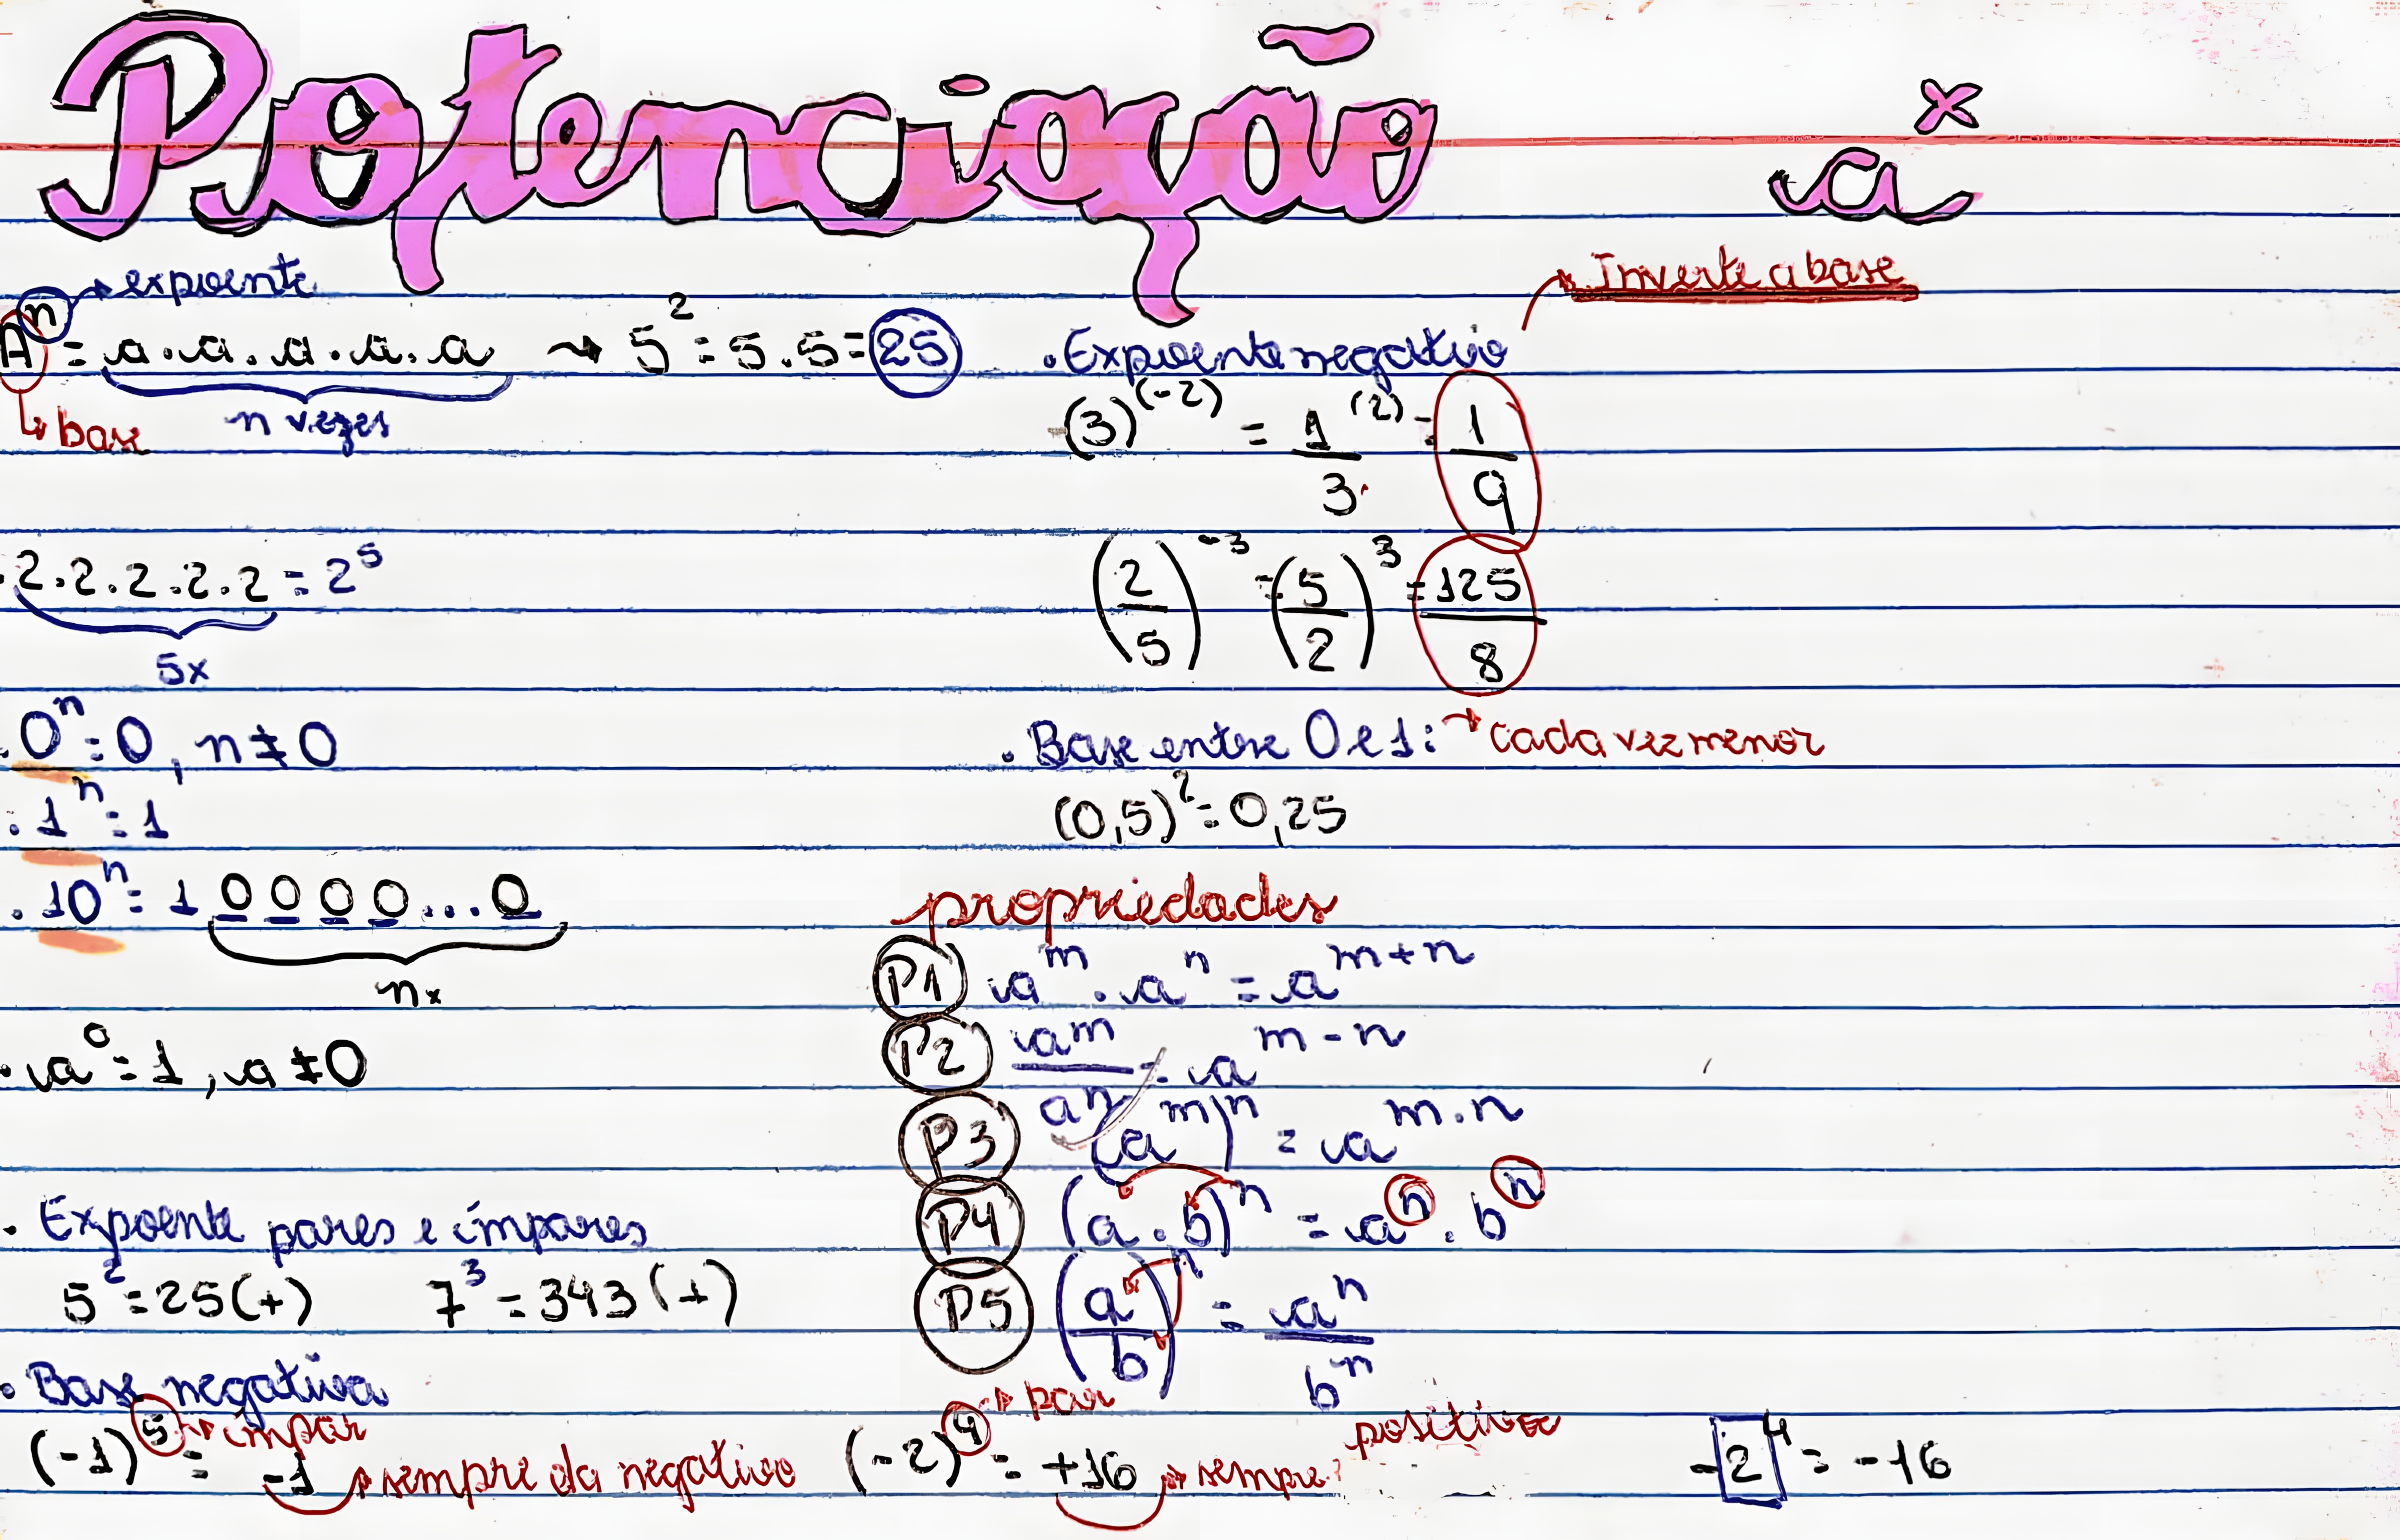 Potenciação
a^x
expoente
A^n = a.a.a.a.a → 5^2 = 5.5 = 25
base
n vezes
.2.2.2.2.2 = 2^5
5x
.0^n = 0, n ≠ 0
.1^n = 1
.10^n = 1 0 0 0 0 ... 0
nx
.a^0 = 1, a ≠ 0
. Expoente pares e ímpares
5^2 = 25 (+) 7^3 = 343 (+)
. Base negativa
(-1)^5 = -1
ímpar
sempre da negativo
(-2)^4 = +16
par
sempre positivo
-2^4 = -16
Inverte a base
. Expoente negativo
(3)^(-2) = 1/3^(2) = 1/9
(2/5)^-3 = (5/2)^3 = 125/8
. Base entre 0 e 1: → cada vez menor
(0,5)^2 = 0,25
propriedades
P1 a^m . a^n = a^m+n
P2 a^m/a^n = a^m-n
P3 (a^m)^n = a^m.n
P4 (a.b)^n = a^n . b^n
P5 (a/b)^n = a^n/b^n